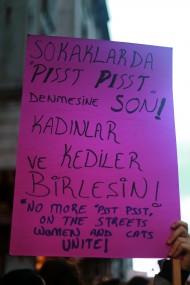 SOKAKLARDA
"PISST PISST"
DENMESİNE SON!
KADINLAR
VE KEDİLER
BİRLEŞİN!
"NO MORE "PSST PSST"
ON THE STREETS
WOMEN AND CATS
UNITE!